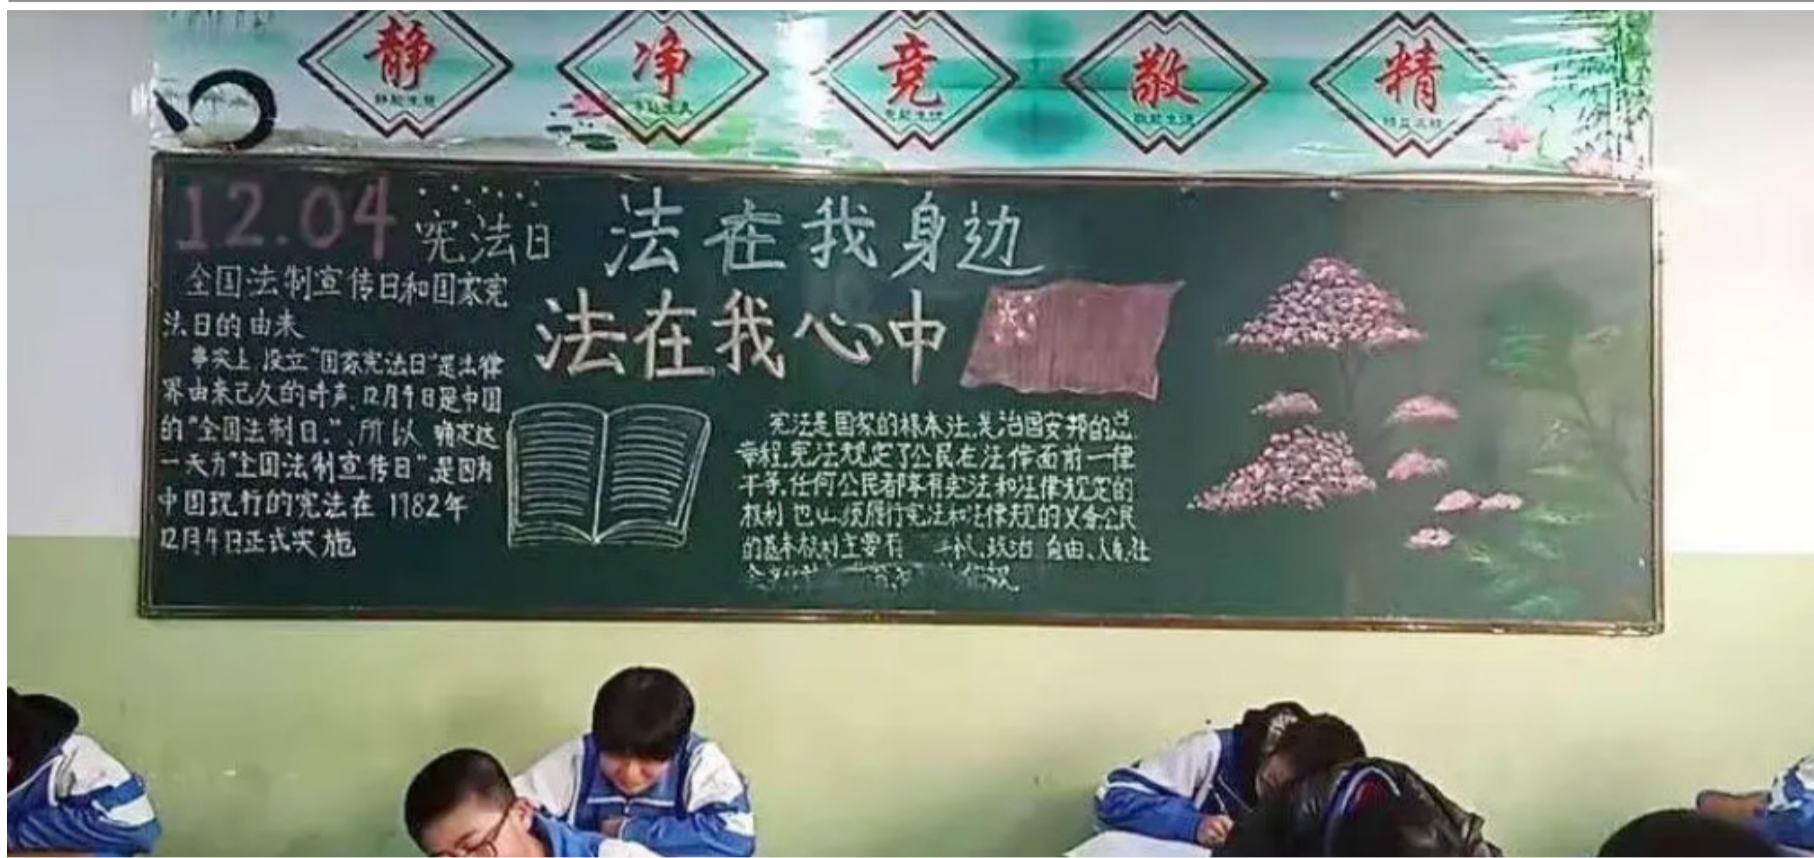 静 净 竞 敬 精
12.04 宪法日
法在我身边
法在我心中
全国法制宣传日和国家宪
法日的由来
事实上,设立"国家宪法日"是法律
界由来已久的呼声,12月4日是中国
的"全国法制日."、所以 确定这
一天为"全国法制宣传日"是因为
中国现行的宪法在 1982年
12月4日正式实施
宪法是国家的根本法,是治国安邦的总
章程,宪法规定了公民在法律面前一律
平等,任何公民都享有宪法和法律规定的
权利 也必须履行宪法和法律规的义务公民
的基本权利主要有 政治 自由、人身、社